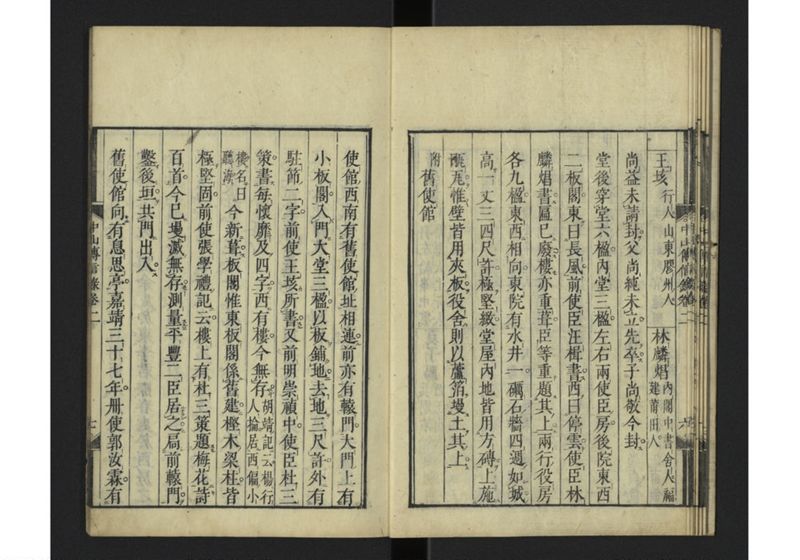 王垓行人山東膠州人 林麟焻內閣中書舍人福建莆田人
尚益未請封父尚純未立先卒子尚敬今封
堂後穿堂六楹內堂三楹左右兩使臣房後院東西
二板閣東曰長風前使臣汪楫書西曰停雲使臣林
麟焻書匾已廢樓亦重葺臣等重題其上兩行役房
各九楹東西相向東院有水井一礪石牆四週如城
高一丈三四尺許極堅緻堂屋內地皆用方磚上施
㼧瓦惟壁皆用夾板役舍則以蘆箔墁土其上
附舊使館
使館西南有舊使館址相連前亦有轅門大門上有
小板閣入門大堂三楹以板鋪地去地三尺許外有
駐節二字前使王垓所書又前明崇禎中使臣杜三
策書每懷靡及四字西有樓今無存胡靖記云楊行人掄居西偏小
樓名曰聽海今新葺板閣惟東板閣係舊建樫木梁柱皆
極堅固前使張學禮記云樓上有杜三策題梅花詩
百首今已墁滅無存測量平豐二臣居之局前轅門
鑿後垣共門出入
舊使館向有息思亭嘉靖三十七年冊使郭汝霖有
中山傳信錄卷二
七